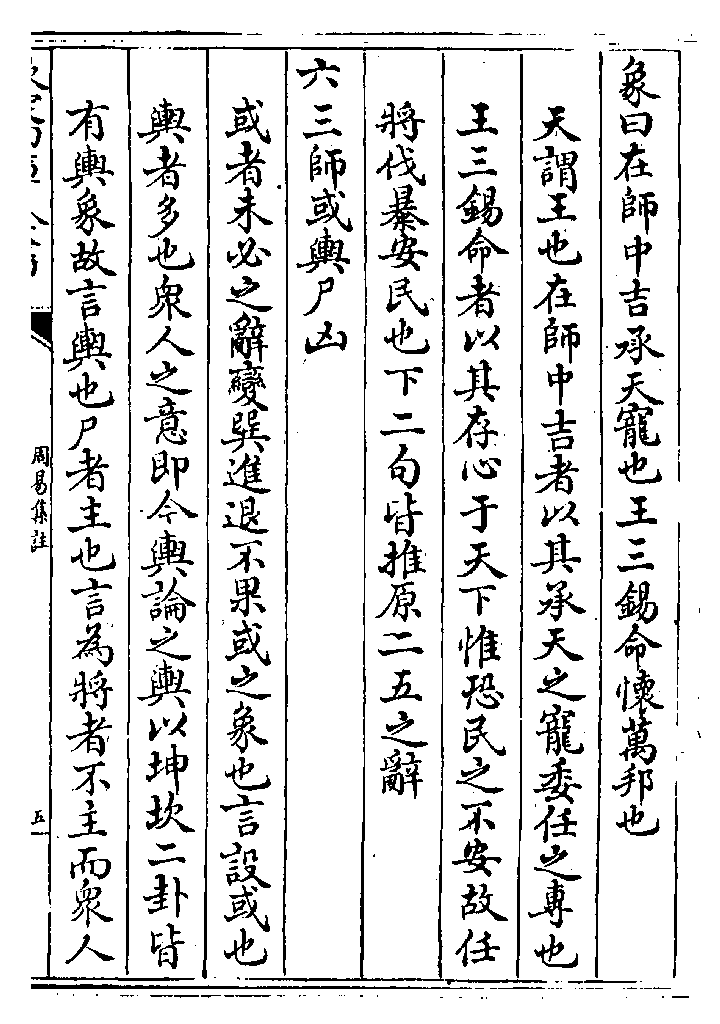 象曰在師中吉承天寵也王三錫命懷萬邦也
天謂王也在師中吉者以其承天之寵委任之專也
王三錫命者以其存心于天下惟恐民之不安故任
將伐暴安民也下二句皆推原二五之辭
六三師或輿尸凶
或者未必之辭變巽進退不果或之象也言設或也
輿者多也衆人之意即今輿論之輿以坤坎二卦皆
有輿象故言輿也尸者主也言為將者不主而衆人
周易集註
五